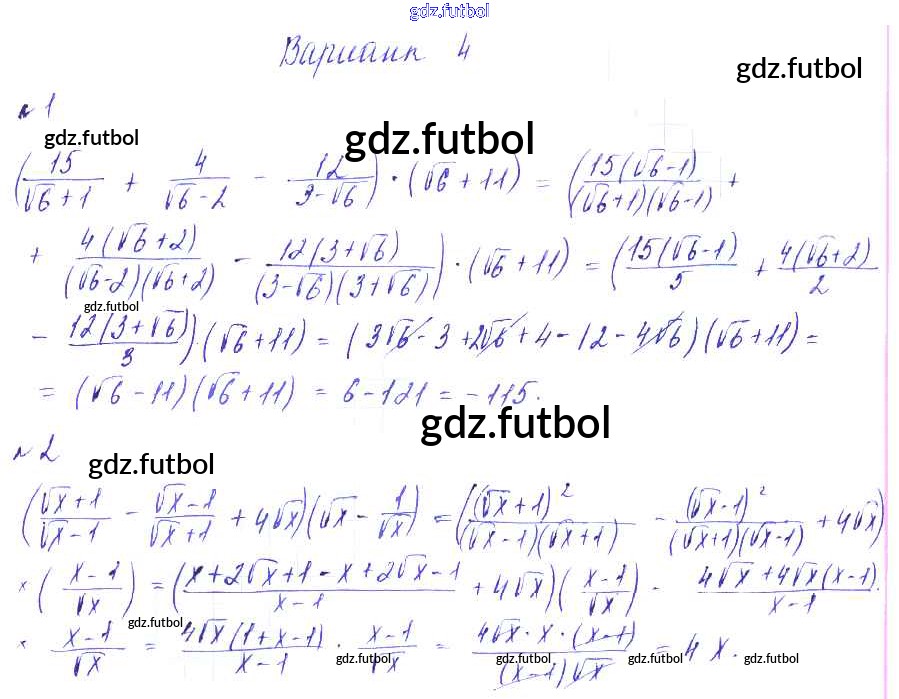 gdz.futbol
Вариант 4
gdz.futbol
№1
gdz.futbol
gdz.futbol
(15/(√6+1) + 4/(√6-2) - 12/(3-√6)) · (√6+11) = (15(√6-1)/((√6+1)(√6-1)) +
+ 4(√6+2)/((√6-2)(√6+2)) - 12(3+√6)/((3-√6)(3+√6))) · (√6+11) = (15(√6-1)/5 + 4(√6+2)/2
gdz.futbol
- 12(3+√6)/3)(√6+11) = (3√6-3+2√6+4-12-4√6)(√6+11) =
= (√6-11)(√6+11) = 6-121 = -115.
gdz.futbol
№2
gdz.futbol
((√x+1)/(√x-1) - (√x-1)/(√x+1) + 4√x)(√x - 1/√x) = ((√x+1)²/((√x-1)(√x+1)) - (√x-1)²/((√x+1)(√x-1)) + 4√x)
×((x-1)/√x) = ((x+2√x+1-x+2√x-1)/(x-1) + 4√x)((x-1)/√x) = (4√x+4√x(x-1))/(x-1) ·
× (x-1)/√x = 4√x(1+x-1)/(x-1) · (x-1)/√x = 4√x·x·(x-1)/((x-1)√x) = 4x.
gdz.futbol gdz.futbol gdz.futbol gdz.futbol